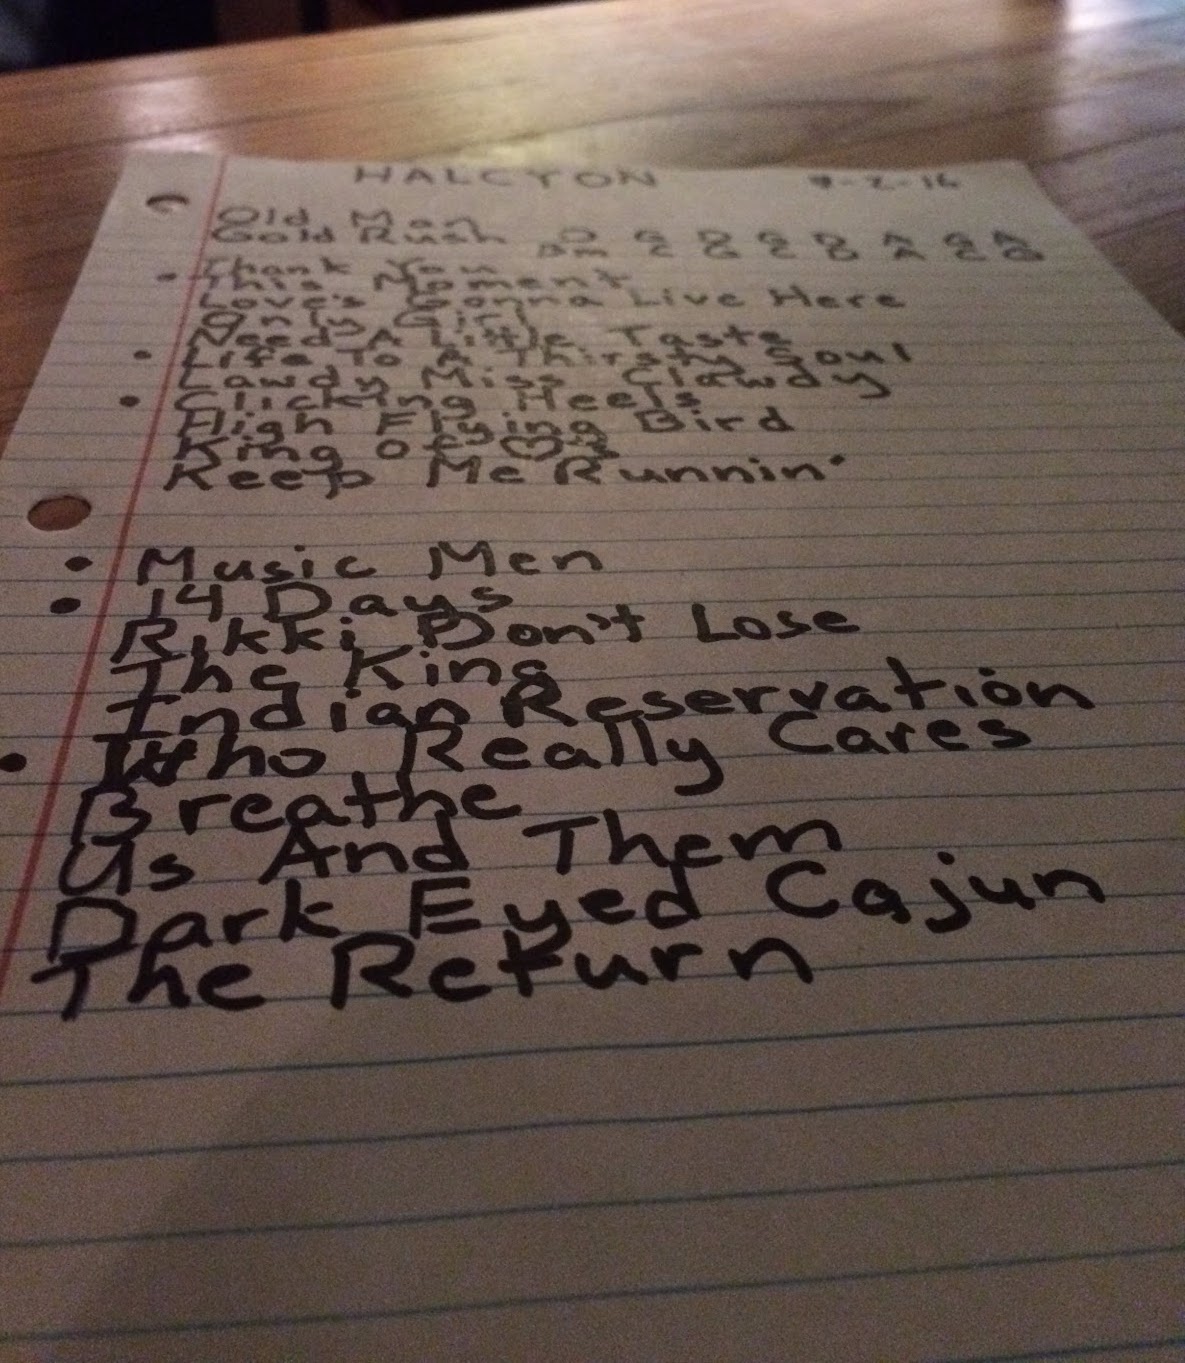 HALCYON 9-2-16
Old Man
Gold Rush
• Thank You
This Moment
Love's Gonna Live Here
Only Girl
Need A Little Taste
• Life To A Thirsty Soul
Lawdy Miss Clawdy
• Clicking Heels
High Flying Bird
King of
Keep Me Runnin'
• Music Men
• 14 Days
Rikki Don't Lose
The King
Indian Reservation
• Who Really Cares
Breathe
Us And Them
Dark Eyed Cajun
The Return